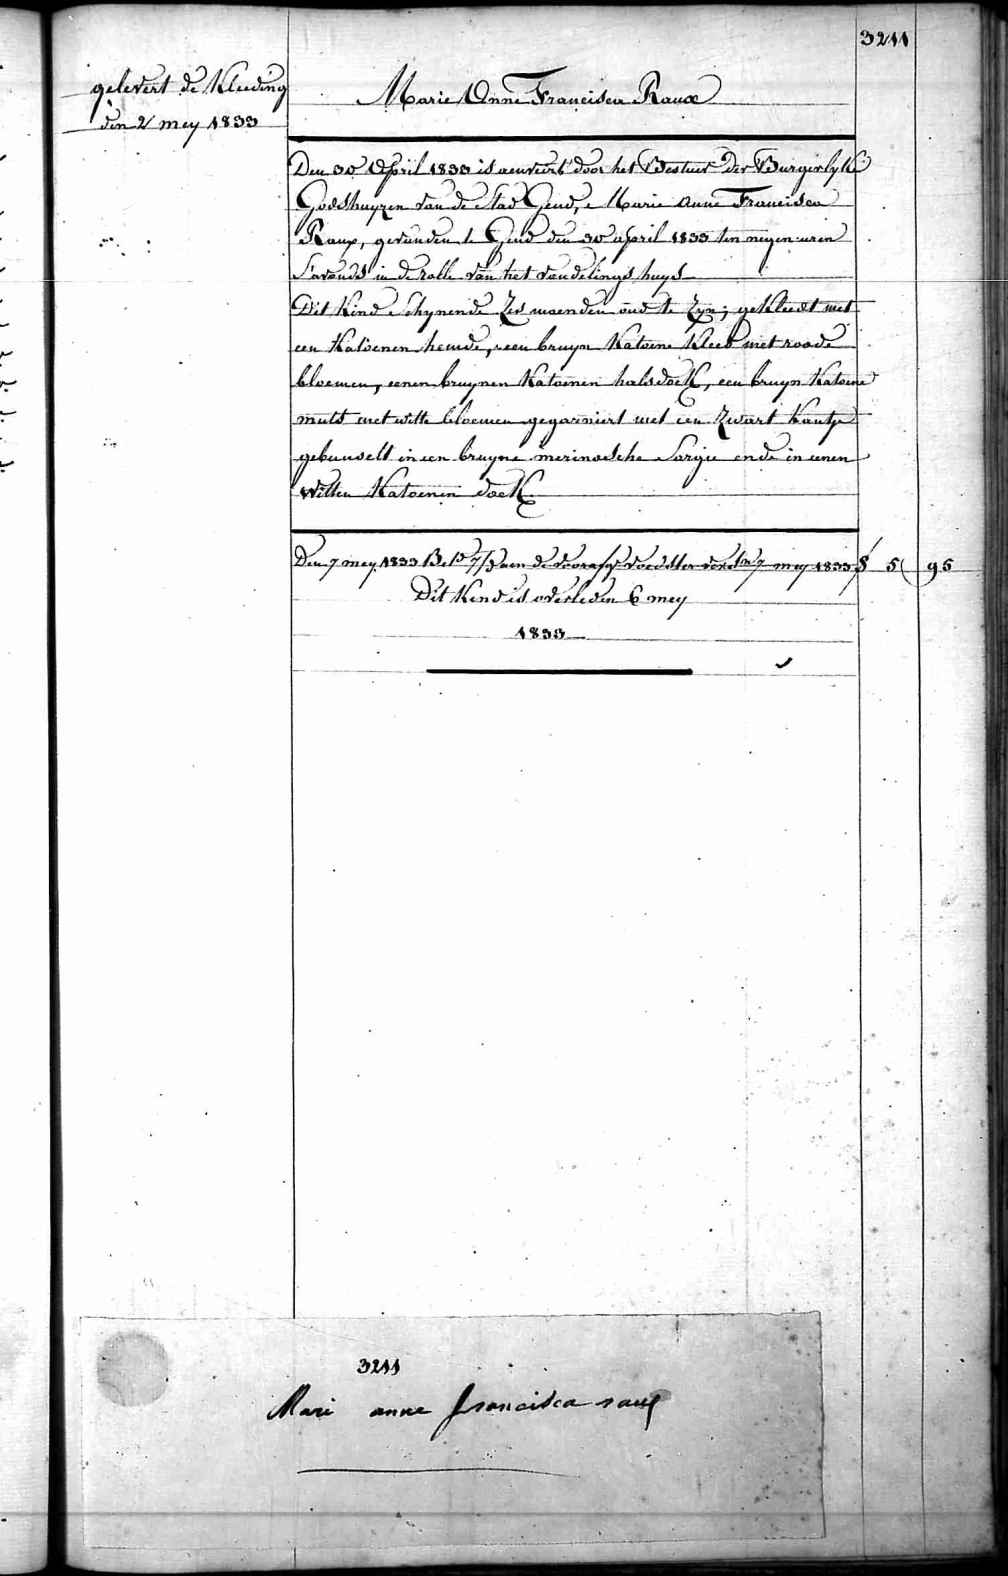 3211
gelevert de Kleeding
den 2 mey 1833
Marie Anne Francisca Raux
Den 30 April 1833 is aenveirt door het Bestuer der Burgerlyke
Godshuyzen van de Stad Gend, Marie Anne Francisca
Raux, gevonden te Gend den 30 april 1833 ten negen uren
S'avonds in de rolle van het vondelings huys
Dit Kind schynende Zes maenden oud te Zyn; gekleedt met
een Katoenen hemde, een bruyn Katoene Kleed met roode
bloemen, eenen bruynen Katoenen halsdoek, een bruyn Katoene
muts met witte bloemen gegarniert met een Zwart Kantje
gebunselt in een bruyne merinosche Sargie ende in eenen
Witten Katoenen doek
Den 7 mey 1833 aen de voedster 7 mey 1833 5 95
Dit Kend is overleden 6 mey
1833
3211
Mari anne francisca raux